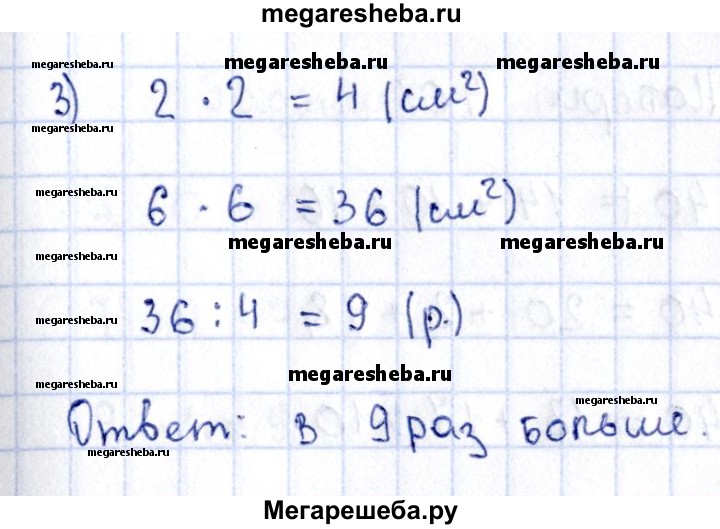 megaresheba.ru
megaresheba.ru megaresheba.ru megaresheba.ru
3) 2 · 2 = 4 (см²)
megaresheba.ru
megaresheba.ru
6 · 6 = 36 (см²)
megaresheba.ru megaresheba.ru
megaresheba.ru
megaresheba.ru
36 : 4 = 9 (р.)
megaresheba.ru
megaresheba.ru
megaresheba.ru
Ответ: в 9 раз больше.
megaresheba.ru
Мегарешеба.ру